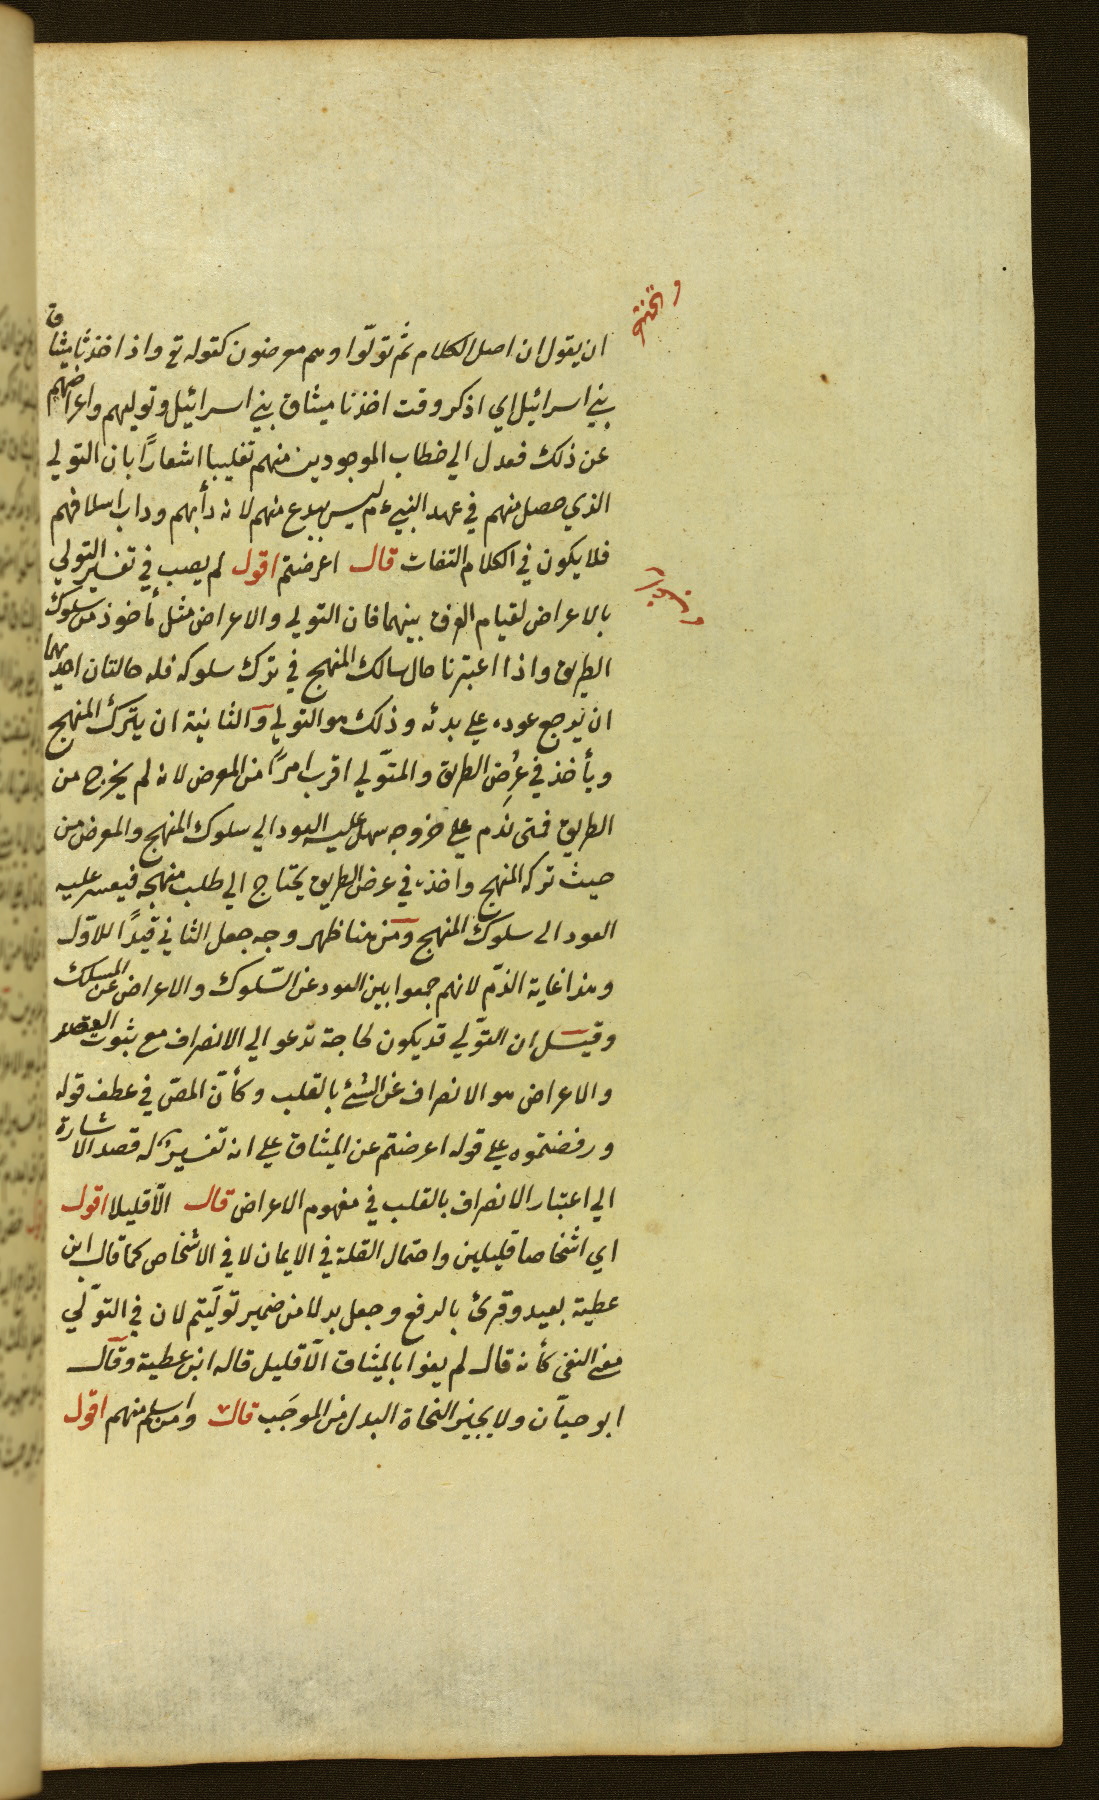 ان يقول ان اصل الكلام ثم تولّوا وهم معرضون كقوله تع واذ اخذنا ميثاق
بني اسرائيل اي اذكر وقت اخذنا ميثاق بني اسرائيل وتوليهم واعراضهم
عن ذلك فعدل الي خطاب الموجودين منهم تغليبا اشعارًا بان التولي
الذي حصل منهم في عهد النبي عم ليس ببدع منهم لانه دأبهم وداب اسلافهم
فلا يكون في الكلام التفات قال اعرضتم اقول لم يصب في تفسير التولي
بالاعراض لقيام الفرق بينهما فان التولي والاعراض مثل مأخوذ من سلوك
الطريق واذا اعتبرنا حال سالك المنهج في ترك سلوكه فله حالتان احديهما
ان يرجع عوده علي بدئه وذلك هو التولي والثانية ان يترك المنهج
ويأخذ في عُرض الطريق والمتولّي اقرب امرًا من المعرض لانه لم يخرج من
الطريق فمتى ندم علي خروجه سهل عليه العود الي سلوك المنهج والمعرض من
حيث تركه المنهج واخذه في عرض الطريق يحتاج الي طلب منهجه فيعسر عليه
العود الى سلوك المنهج ومن هنا ظهر وجه جعل الثاني قيدًا للاوّل
وهذا غاية الذّم لانهم جمعوا بين العود عن السّلوك والاعراض عن المسلك
وقيل ان التولّي قد يكون لحاجة تدعو الي الانصراف مع ثبوت العقد
والاعراض هو الانصراف عن الشئ بالقلب وكأنّ المصّ في عطف قوله
ورفضتموه علي قوله اعرضتم عن الميثاق علي انه تفسيرٌ له قصد الاشارة
الي اعتبار الانصراف بالقلب في مفهوم الاعراض قال الّا قليلا اقول
اي اشخاصا قليلين واحتمال القلة في الايمان لا في الاشخاص كما قال ابن
عطية بعيد وقرئ بالرفع وجعل بدلا من ضمير تولّيتم لان في التولّي
معنى النفى كأنه قال لم يفوا بالميثاق الّا قليل قاله ابن عطية وقال
ابو حيّان ولا يجيز النحاة البدل من الموجَب قال ومن اسلم منهم اقول